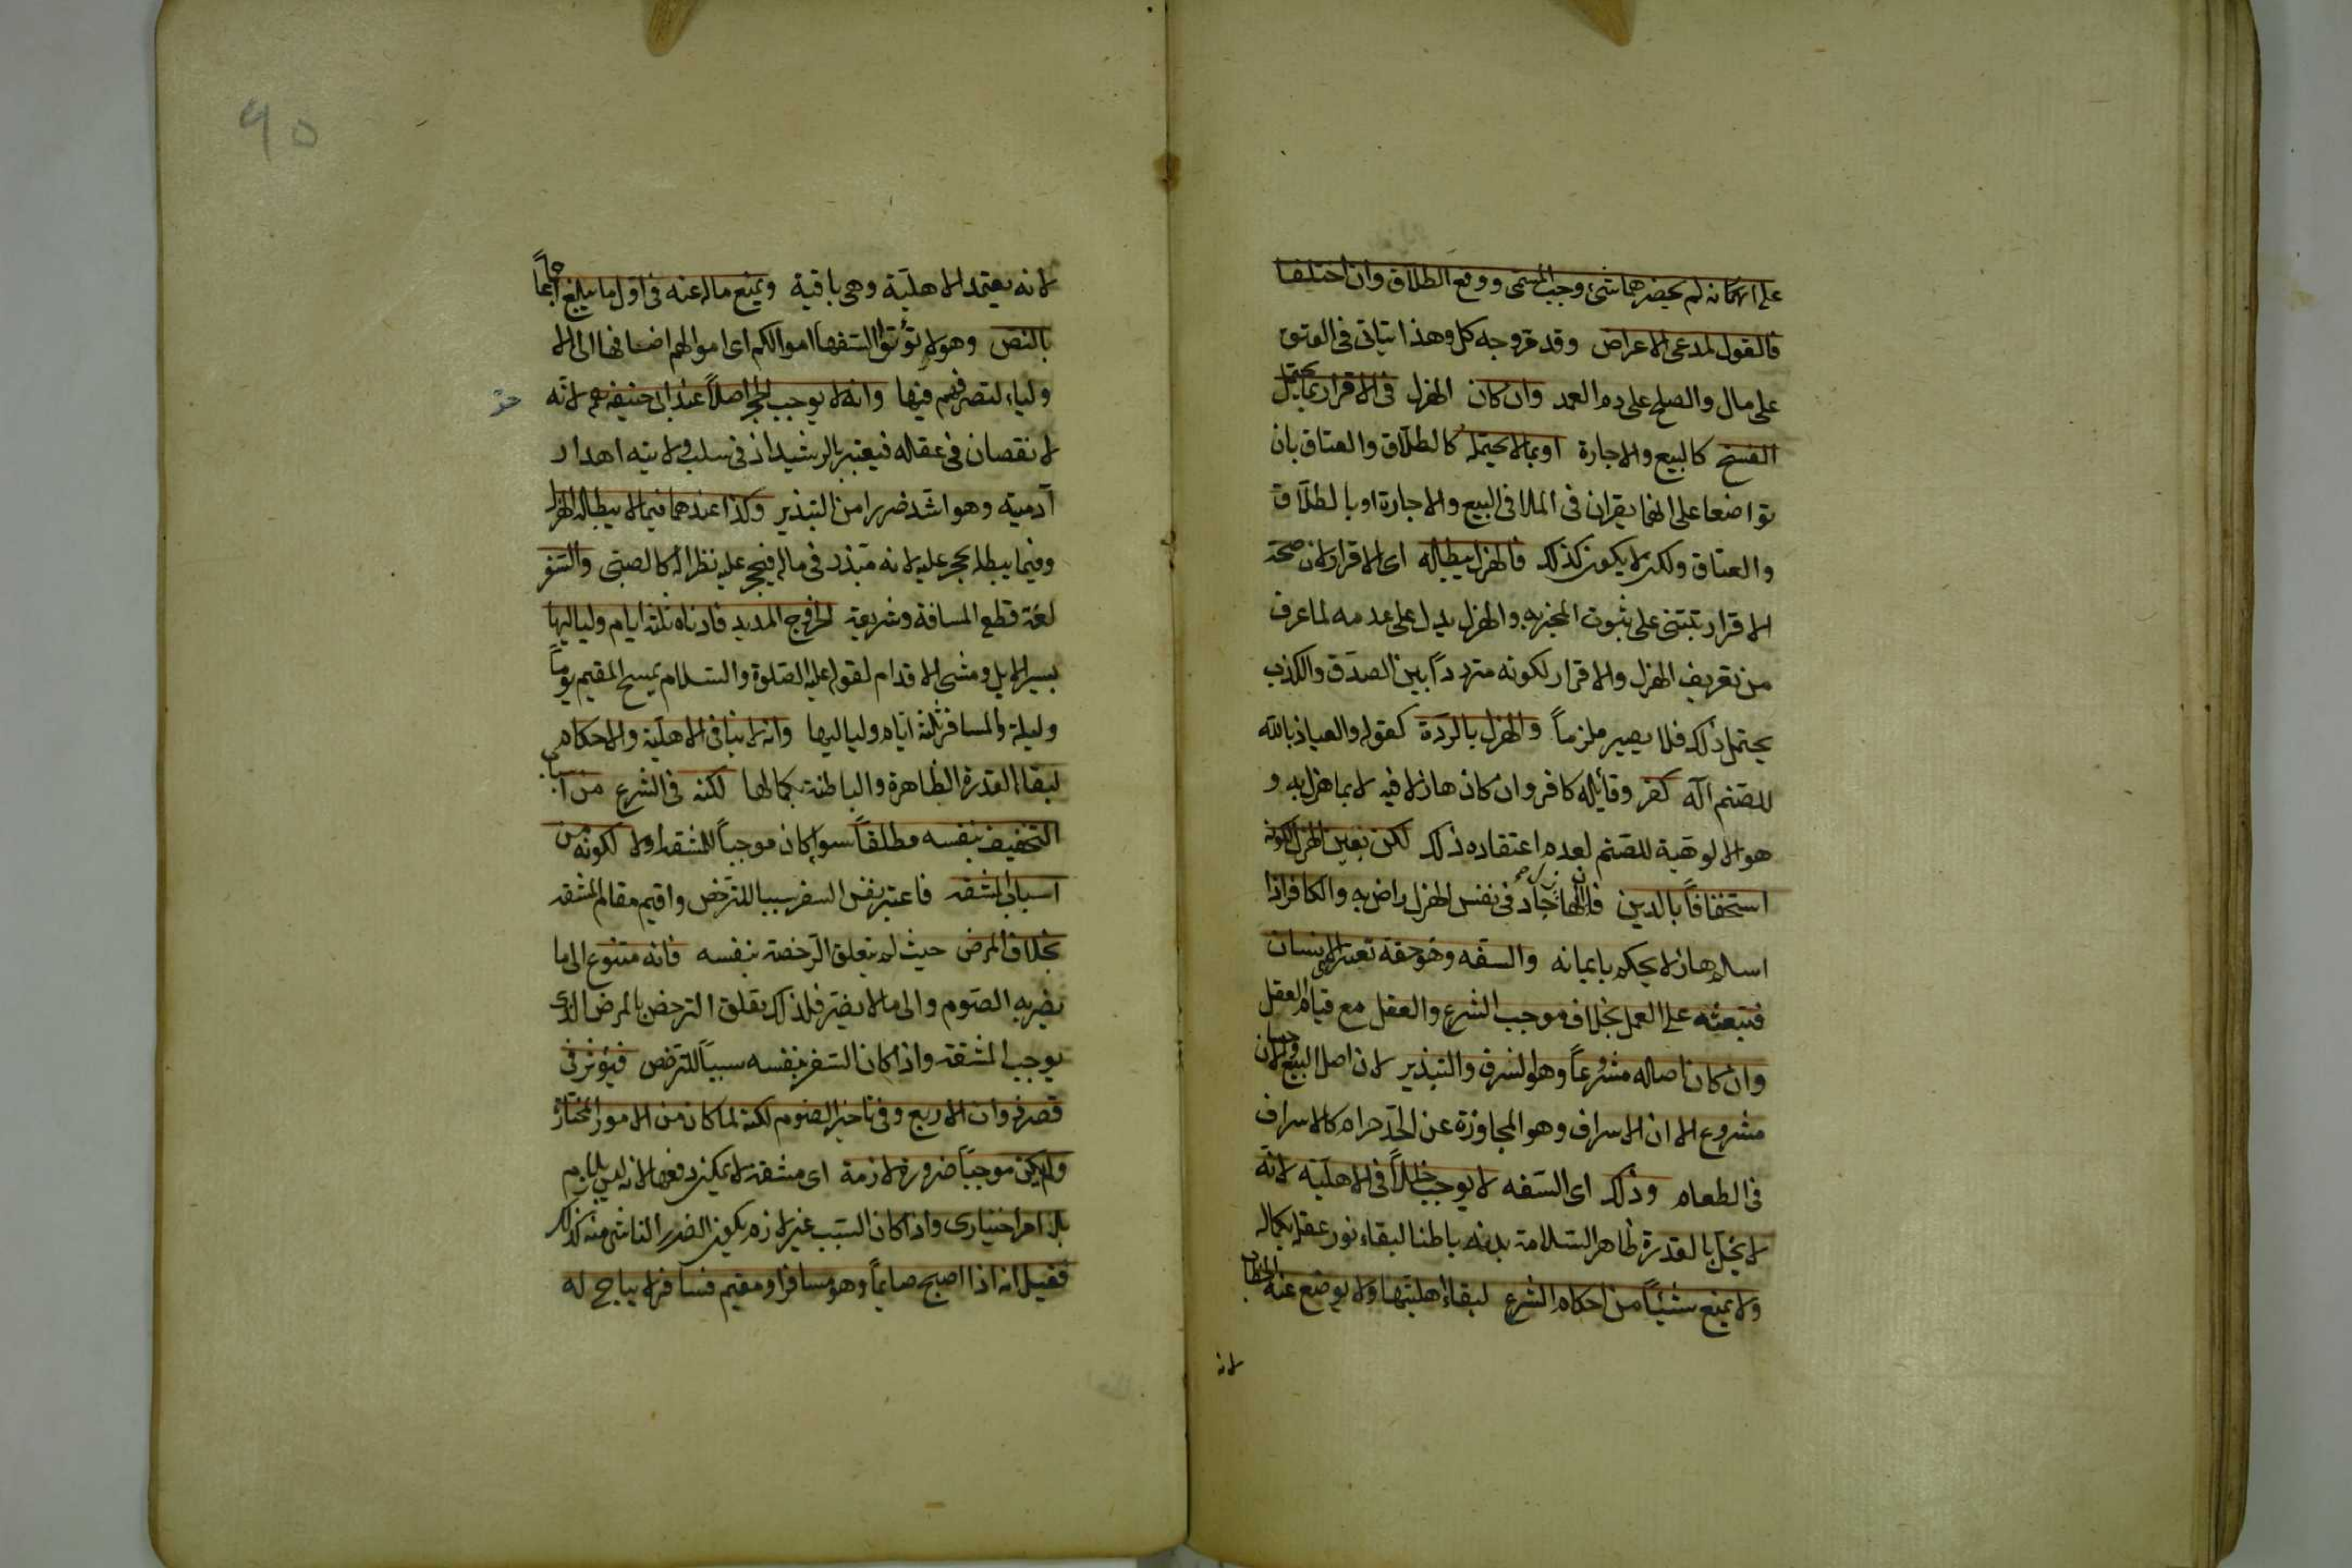 على انه لم يحضرهما شئ وجب المسمى ووقع الطلاق وان اختلفا
فالقول لمدعى الاعراض وقد مر وجه كل وهذا يتأتى فى العتق
على مال والصلح على دم العمد وان كان الهزل فى الاقرار بما يحتمل
الفسخ كالبيع والاجارة او بما لا يحتمله كالطلاق والعتاق بان
تواضعا على انهما يقران فى الملا فى البيع والاجارة او بالطلاق
والعتاق ولكن لا يكون كذلك فالهزل يبطله اى الاقرار لان صحة
الاقرار تبتنى على ثبوت المخبر به والهزل يدل على عدمه لما عرف
من تعريف الهزل والاقرار لكونه مترددا بين الصدق والكذب
يحتمل ذلك فلا يصير ملزماً والهزل بالردة كقوله والعياذ بالله
للصنم اله كفر وقائله كافر وان كان هازلا فيه لا بما هزل به و
هو الالوهية للصنم لعدم اعتقاده ذلك لكن بعين الهزل لكونه
استخفافاً بالدين فان الهازل جاد فى نفس الهزل راض به والكافر اذا
اسلم هازلا يحكم بايمانه والسفه وهو خفة تعترى الانسان
فتبعثه على العمل بخلاف موجب الشرع والعقل مع قيام العقل
وان كان اصله مشروعاً وهو السرف والتبذير لان اصل البيع والاحسان
مشروع الا ان الاسراف وهو المجاوزة عن الحد حرام كالاسراف
فى الطعام وذلك اى السفه لا يوجب خللاً فى الاهلية لانه
لا يخل بالقدرة ظاهرا لسلامة بدنه باطنا لبقاء نور عقله بكماله
ولا يمنع شيئاً من احكام الشرع لبقاء اهليتها ولا يوضع عنه الخطاب
لانه
٩٥
لانه يعتمد الاهلية وهى باقية ويمنع ماله عنه فى اول ما يبلغ اجماعاً
بالنص وهو لا تؤتوا السفهاء اموالكم اى اموالهم اضافها الى الا
ولياء لتصرفهم فيها وانه لا يوجب الحجر اصلاً عند ابى حنيفة رحمه لانه
لا نقصان فى عقله فيعتبر بالرشيد اذ فى سلب ولايته اهدار
آدميته وهو اشد ضررا من التبذير وكذا عندهما فيما لا يبطله الهزل
وفيما يبطله يحجر عليه لانه مبذر فى ماله فيحجر عليه نظرا له كالصبى والسفر
لغة قطع المسافة وشريعة الخروج المديد فادناه ثلثة ايام ولياليها
بسير الابل ومشى الاقدام لقوله عليه الصلوة والسلام يمسح المقيم يوماً
وليلة والمسافر ثلثة ايام ولياليها وانه لا ينافى الاهلية والاحكام
لبقاء القدرة الظاهرة والباطنة بكمالها لكنه فى الشرع من اسباب
التخفيف بنفسه مطلقاً سواء كان موجباً للمشقة او لا لكونه من
اسباب المشقة فاعتبر نفس السفر سببا للترخص واقيم مقام المشقة
بخلاف المرض حيث لم يتعلق الرخصة بنفسه فانه متنوع الى ما
يضر به الصوم والى ما لا يضر فلذلك تعلق الترخص بالمرض الذى
يوجب المشقة واذا كان السفر بنفسه سبباً للترخص فيؤثر فى
قصر ذوات الاربع وفى تاخير الصوم لكنه لما كان من الامور المختارة
ولم يكن موجباً ضرورة لازمة اى مشقة لا يمكن دفعها لانه ليس بلازم
بل امر اختيارى واذا كان السبب غير لازم يكون الضرر الناشى منه كذلك
فقيل انه اذا اصبح صايماً وهو مسافر او مقيم فسافر لا يباح له